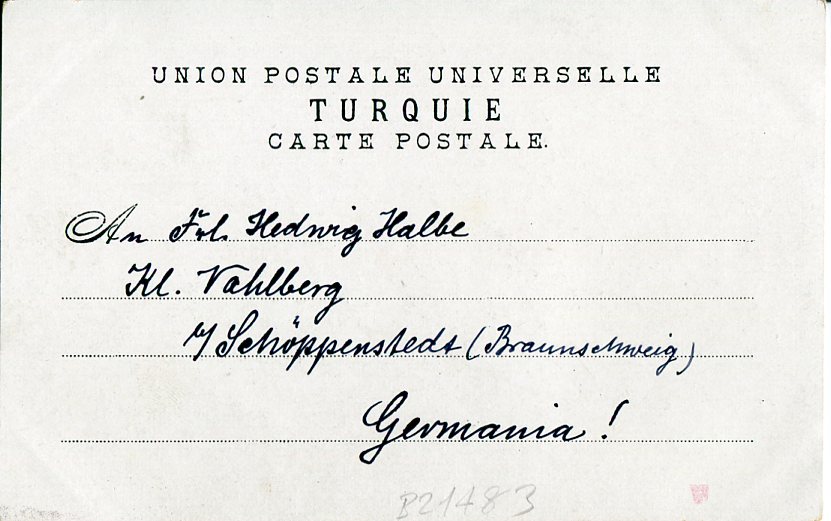 UNION POSTALE UNIVERSELLE
TURQUIE
CARTE POSTALE.
An Frl. Hedwig Halbe
Kl. Vahlberg
b/ Schöppenstedt (Braunschweig)
Germania!
B21483